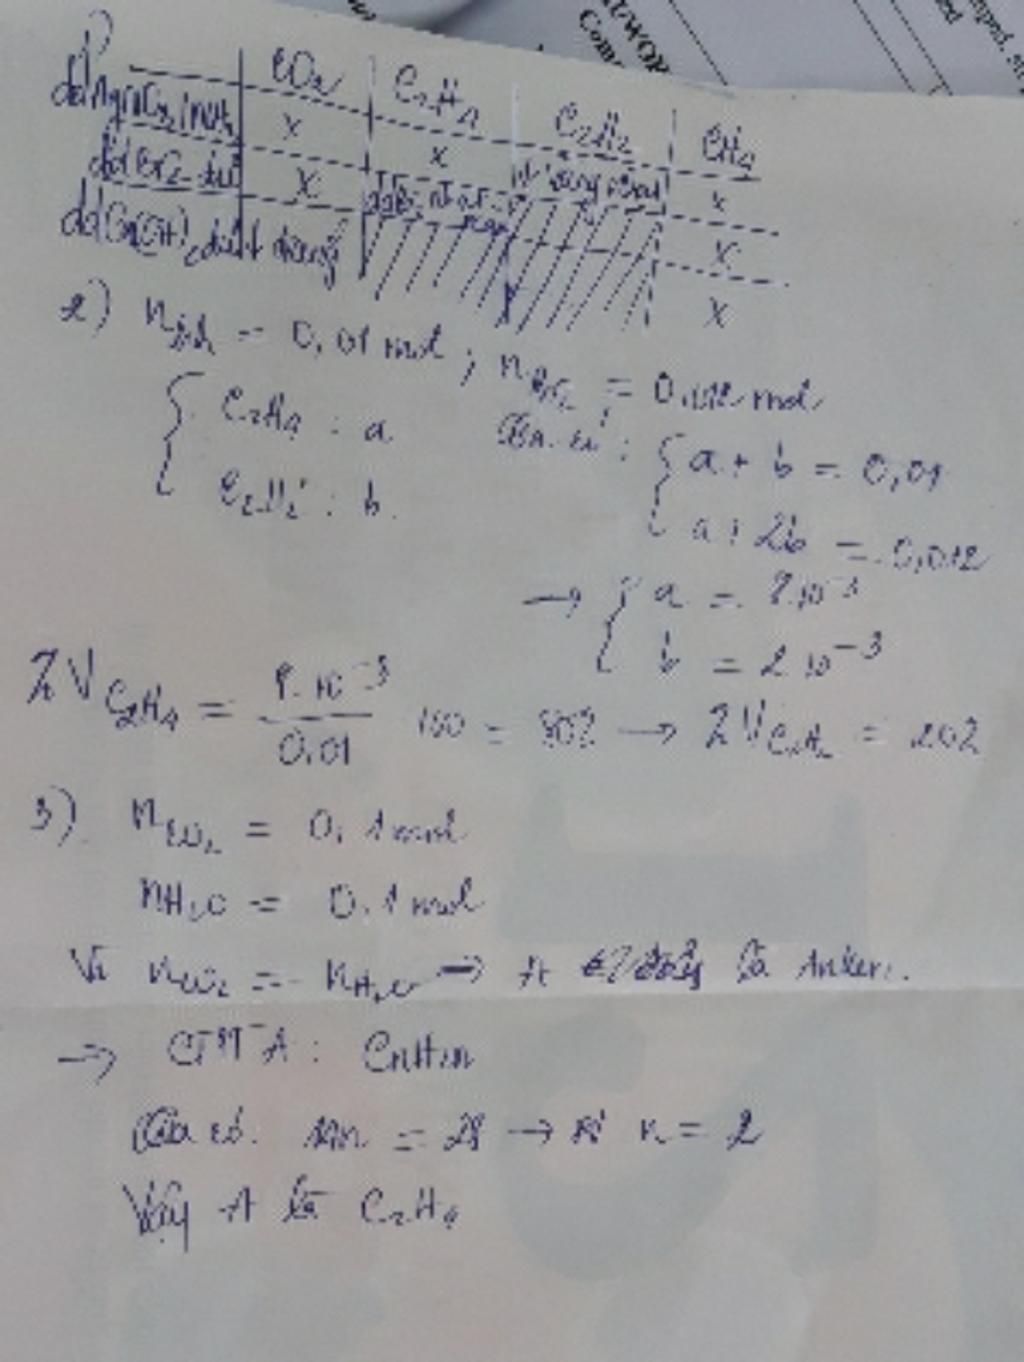 1)
CO2 C2H4 C2H2 CH4
dd AgNO3/NH3 x x ↓ vàng nhạt x
dd Br2 dư x dd Br2 nhạt x
dd Ca(OH)2 dư ↓ trắng x
2) n = 0,01 mol ; nBr2 = 0,012 mol
{ C2H4 : a
C2H2 : b.
Ta có : { a + b = 0,01
a + 2b = 0,012
→ { a = 8.10^-3
b = 2.10^-3
%V C2H4 = 8.10^-3 / 0.01 . 100 = 80% → %V C2H2 = 20%
3) nCO2 = 0,1 mol
nH2O = 0.1 mol
Vì nCO2 = nH2O → A là Anken.
→ CTPT A : CnH2n
Ta có. 14n = 28 → n = 2
Vậy A là C2H4